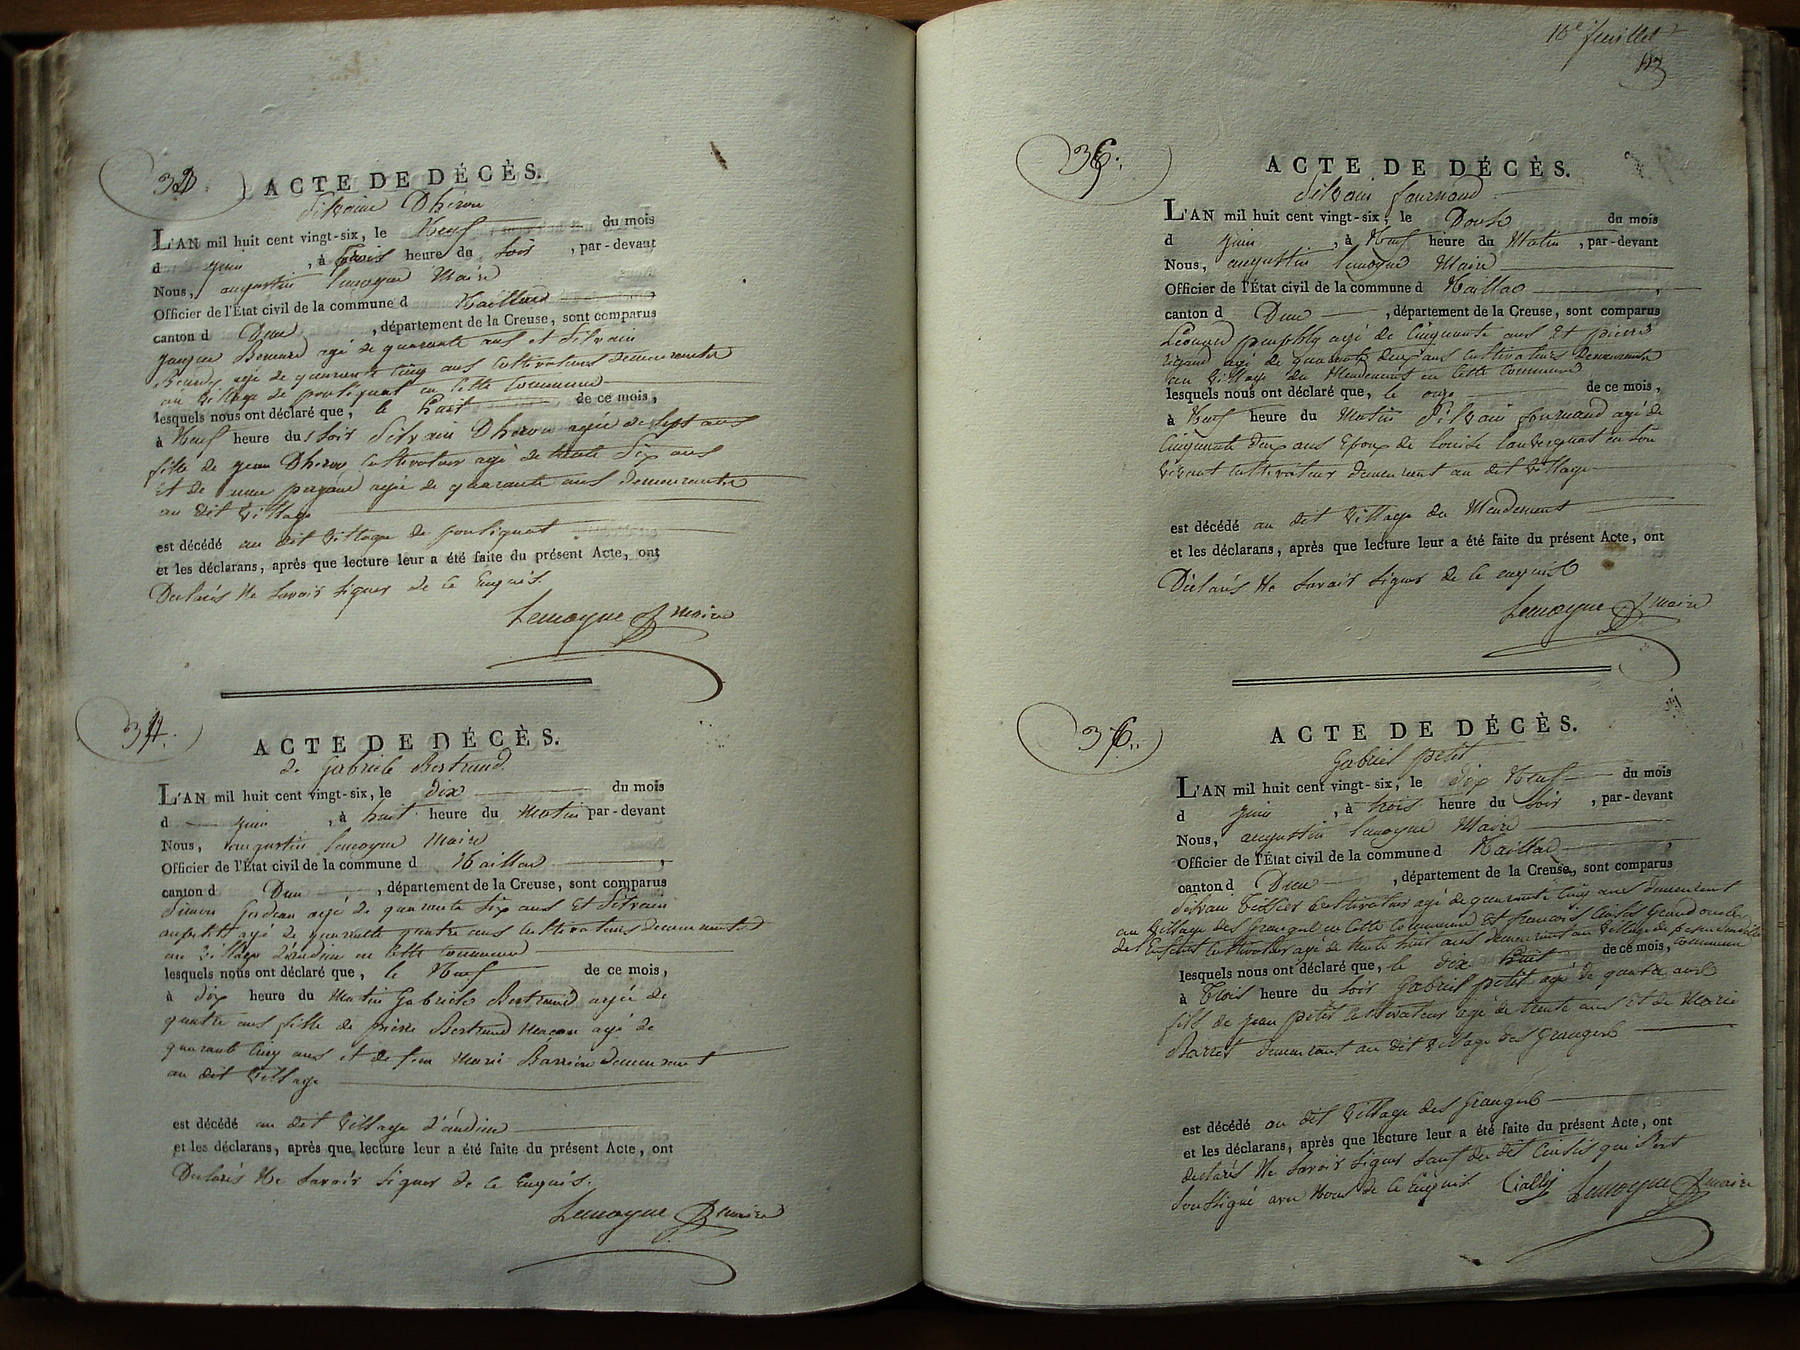 ACTE DE DÉCÈS.
Silvaine Dheron
L'AN mil huit cent vingt-six, le Neuf du mois
d juin, à trois heure du Soir, par-devant
Nous, augustin Lemoyne Maire
Officier de l'État civil de la commune d Naillac
canton d Dun, département de la Creuse, sont comparus
agé de quarante ans et Silvain
agé de quarante cinq ans Cultivateurs demeurants
au village de poutignat en cette Commune
lesquels nous ont déclaré que, le huit de ce mois,
à Neuf heure du Soir Silvain Dheron agée de sept ans
fille de jean Dheron Cultivateur agé de trente six ans
et de agée de quarante ans demeurants
au dit Village
est décédé au dit Village de poutignat
et les déclarans, après que lecture leur a été faite du présent Acte, ont
Declarés Ne Savoir Signer de ce Enquis.
Lemoyne maire
34.
ACTE DE DÉCÈS.
de Gabriele Bertrand
L'AN mil huit cent vingt-six, le dix du mois
d juin, à huit heure du Matin par-devant
Nous, augustin Lemoyne Maire
Officier de l'État civil de la commune d Naillac,
canton d Dun, département de la Creuse, sont comparus
Simon agé de quarante six ans Et Silvain
agé de quarante quatre ans Cultivateurs demeurants
au Village d'andieu en cette Commune
lesquels nous ont déclaré que, le Neuf de ce mois,
à dix heure du Matin Gabriele Bertrand agée de
quatre ans fille de pierre Bertrand Maçon agé de
quarante cinq ans et de feu Marie demeurant
au dit Village
est décédé au dit Village d'andieu
et les déclarans, après que lecture leur a été faite du présent Acte, ont
Declarés Ne Savoir Signer de ce Enquis.
Lemoyne maire
10e feuillet
ACTE DE DÉCÈS.
Silvain fournaud
L'AN mil huit cent vingt-six, le Douse du mois
d juin, à Neuf heure du Matin, par-devant
Nous, augustin Lemoyne Maire
Officier de l'État civil de la commune d Naillac,
canton d Dun, département de la Creuse, sont comparus
Léonard agé de Cinquante ans Et pierre
agé de quarante deux ans Cultivateurs Demeurants
au Village du en cette Commune
lesquels nous ont déclaré que, le onze de ce mois,
à Neuf heure du Matin Silvain fournaud agé de
Cinquante deux ans Epoux de Louise en Son
Vivant Cultivateur demeurant au dit Village
est décédé au dit Village du
et les déclarans, après que lecture leur a été faite du présent Acte, ont
Déclarés Ne Savoir Signer de ce enquis
Lemoyne maire
36.
ACTE DE DÉCÈS.
Gabriel petit
L'AN mil huit cent vingt-six, le dix Neuf du mois
d juin, à trois heure du Soir, par-devant
Nous, augustin Lemoyne Maire
Officier de l'État civil de la commune d Naillac,
canton d Dun, département de la Creuse, sont comparus
Silvain Cultivateur agé de quarante cinq ans demeurant
au Village des Granges en Cette Commune Et françois Grand oncle
de l'Enfant Cultivateur agé de trente huit ans demeurant au Village de
lesquels nous ont déclaré que, le dix huit de ce mois, commune
à Trois heure du Soir Gabriel petit agé de quatre ans
fils de jean petit Cultivateur agé de trente ans Et de Marie
demeurant au dit Village des Granges
est décédé au dit Village des Granges
et les déclarans, après que lecture leur a été faite du présent Acte, ont
declarés Ne Savoir Signer Sauf du dit qui
Soussigné avec Nous de ce Enquis Lemoyne maire